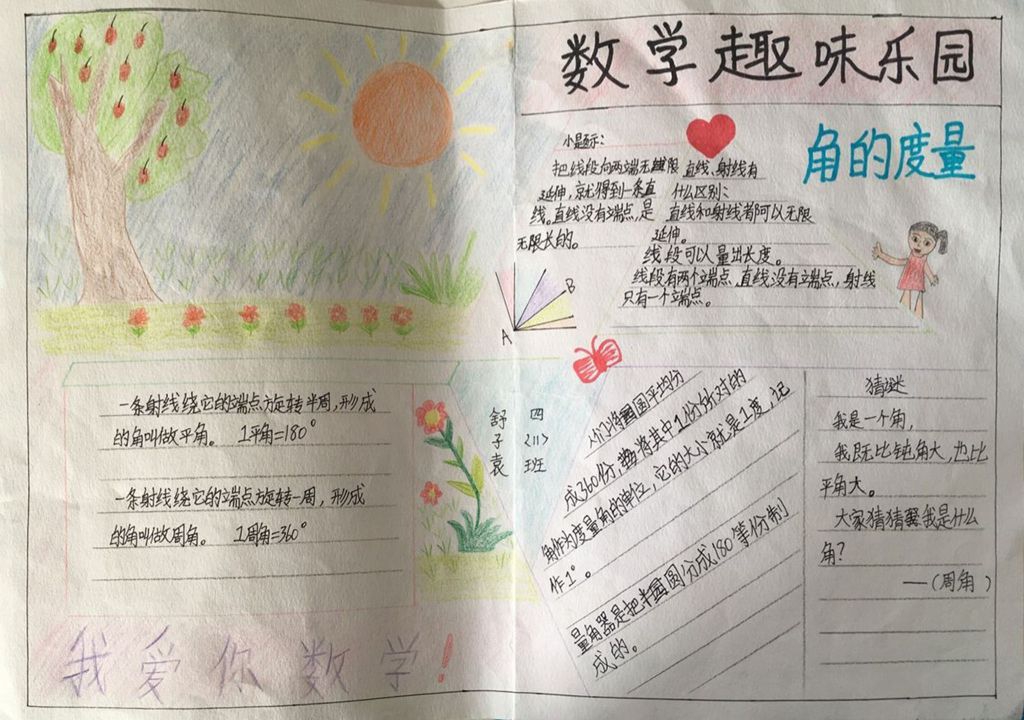 数学趣味乐园
角的度量
小提示:
把线段向两端无限
延伸,就得到一条直
线。直线没有端点,是
无限长的。
直线、射线有
什么区别:
直线和射线都可以无限
延伸。
线段可以量出长度。
线段有两个端点,直线没有端点,射线
只有一个端点。
A
B
一条射线绕它的端点旋转半周,形成
的角叫做平角。 1平角=180°
一条射线绕它的端点旋转一周,形成
的角叫做周角。 1周角=360°
四〈11〉班
舒子袁
人们将圆平均分
成360份,将其中1份所对的
角作为度量角的单位,它的大小就是1度,记
作1°。
量角器是把半圆分成180等份制
成的。
猜谜
我是一个角,
我既比钝角大,也比
平角大。
大家猜猜我是什么
角?
——(周角)
我爱你数学!